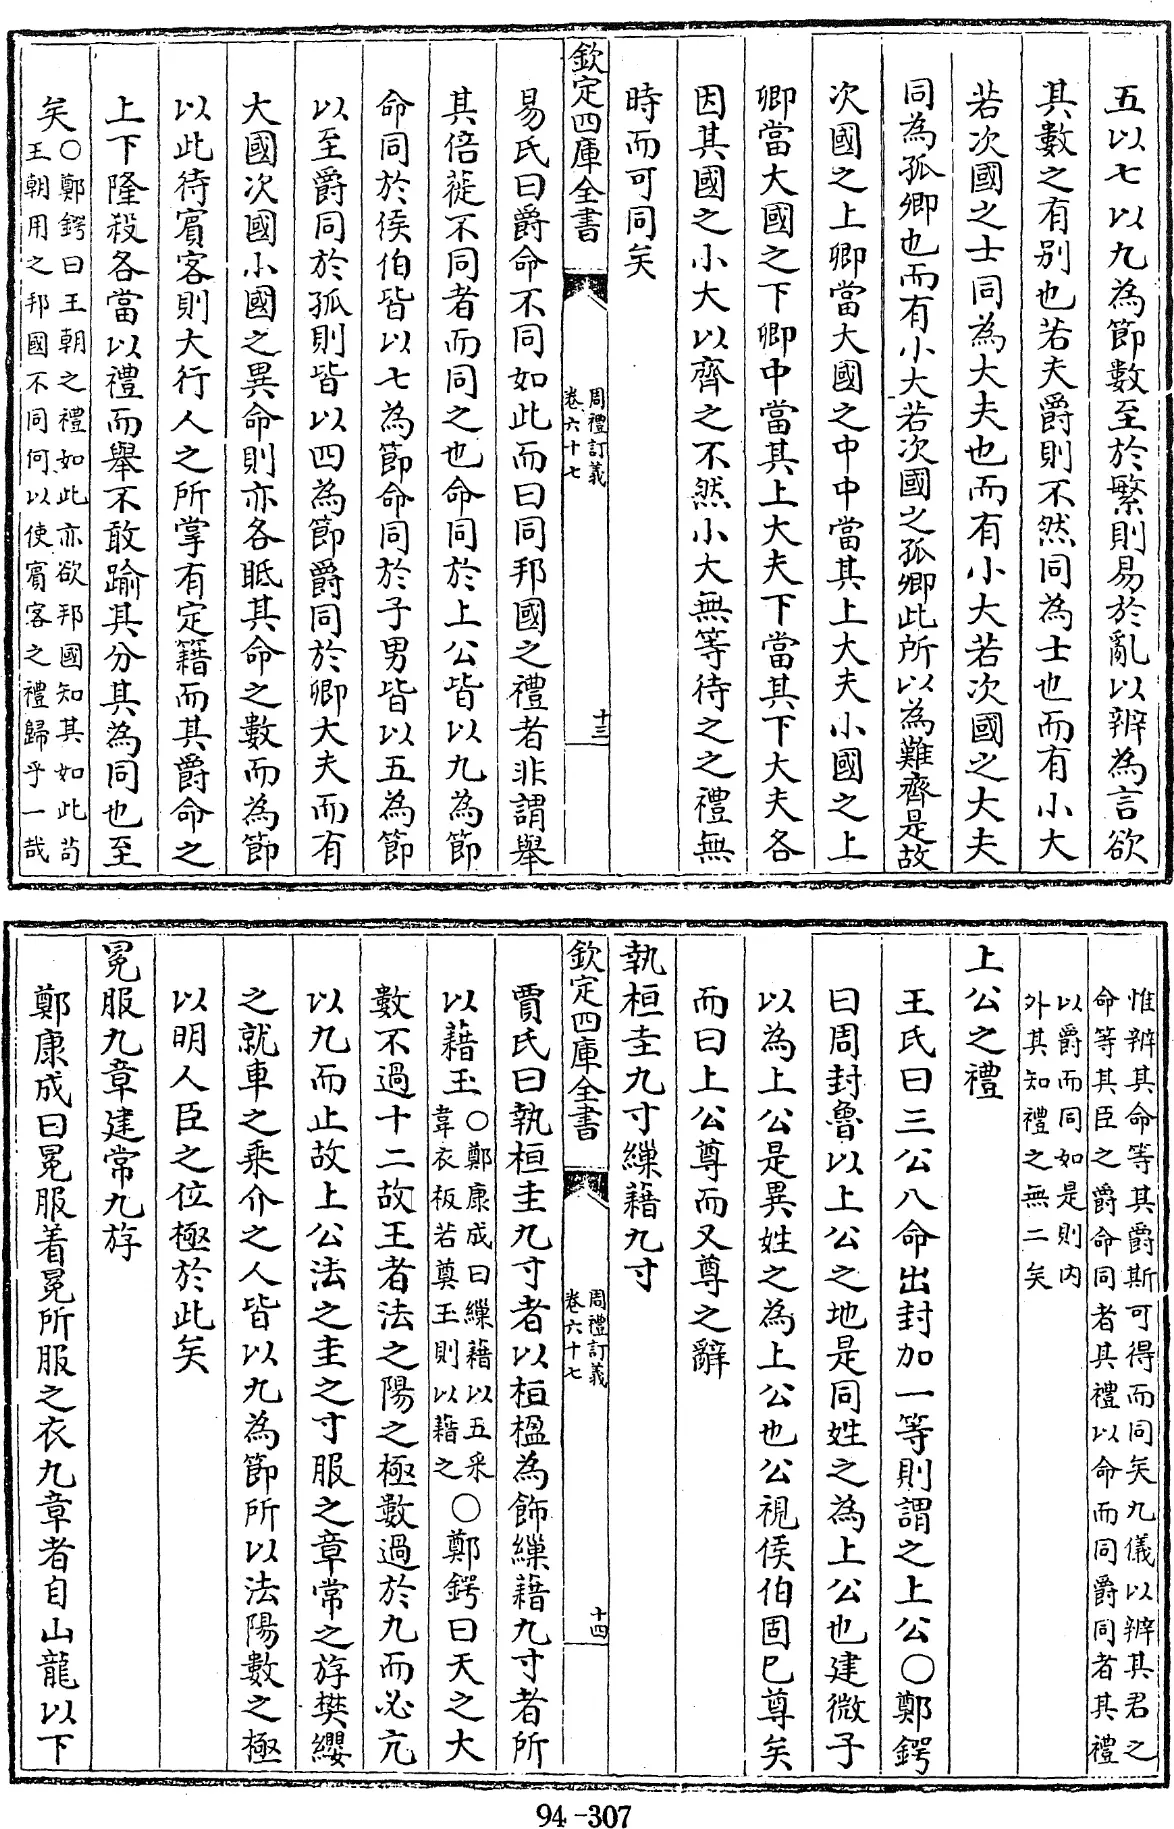 五以七以九為節數至於繁則易於亂以辨為言欲
其數之有别也若夫爵則不然同為士也而有小大
若次國之士同為大夫也而有小大若次國之大夫
同為孤卿也而有小大若次國之孤卿此所以為難齊是故
次國之上卿當大國之中中當其上大夫小國之上
卿當大國之下卿中當其上大夫下當其下大夫各
因其國之小大以齊之不然小大無等待之之禮無
時而可同矣
欽定四庫全書
周禮訂義
卷六十七
十三
易氏曰爵命不同如此而曰同邦國之禮者非謂舉
其倍蓰不同者而同之也命同於上公皆以九為節
命同於侯伯皆以七為節命同於子男皆以五為節
以至爵同於孤則皆以四為節爵同於卿大夫而有
大國次國小國之異命則亦各眡其命之數而為節
以此待賓客則大行人之所掌有定籍而其爵命之
上下隆殺各當以禮而舉不敢踰其分其為同也至
矣○鄭鍔曰王朝之禮如此亦欲邦國知其如此苟
王朝用之邦國不同何以使賓客之禮歸乎一哉
惟辨其命等其爵斯可得而同矣九儀以辨其君之
命等其臣之爵命同者其禮以命而同爵同者其禮
以爵而同如是則内
外其知禮之無二矣
上公之禮
王氏曰三公八命出封加一等則謂之上公○鄭鍔
曰周封魯以上公之地是同姓之為上公也建微子
以為上公是異姓之為上公也公視侯伯固已尊矣
而曰上公尊而又尊之辭
執桓圭九寸繅藉九寸
欽定四庫全書
周禮訂義
卷六十七
十四
賈氏曰執桓圭九寸者以桓楹為飾繅藉九寸者所
以藉玉○鄭康成曰繅藉以五采
韋衣板若奠玉則以藉之
○鄭鍔曰天之大
數不過十二故王者法之陽之極數過於九而必亢
以九而止故上公法之圭之寸服之章常之斿樊纓
之就車之乘介之人皆以九為節所以法陽數之極
以明人臣之位極於此矣
冕服九章建常九斿
鄭康成曰冕服着冕所服之衣九章者自山龍以下
94-307